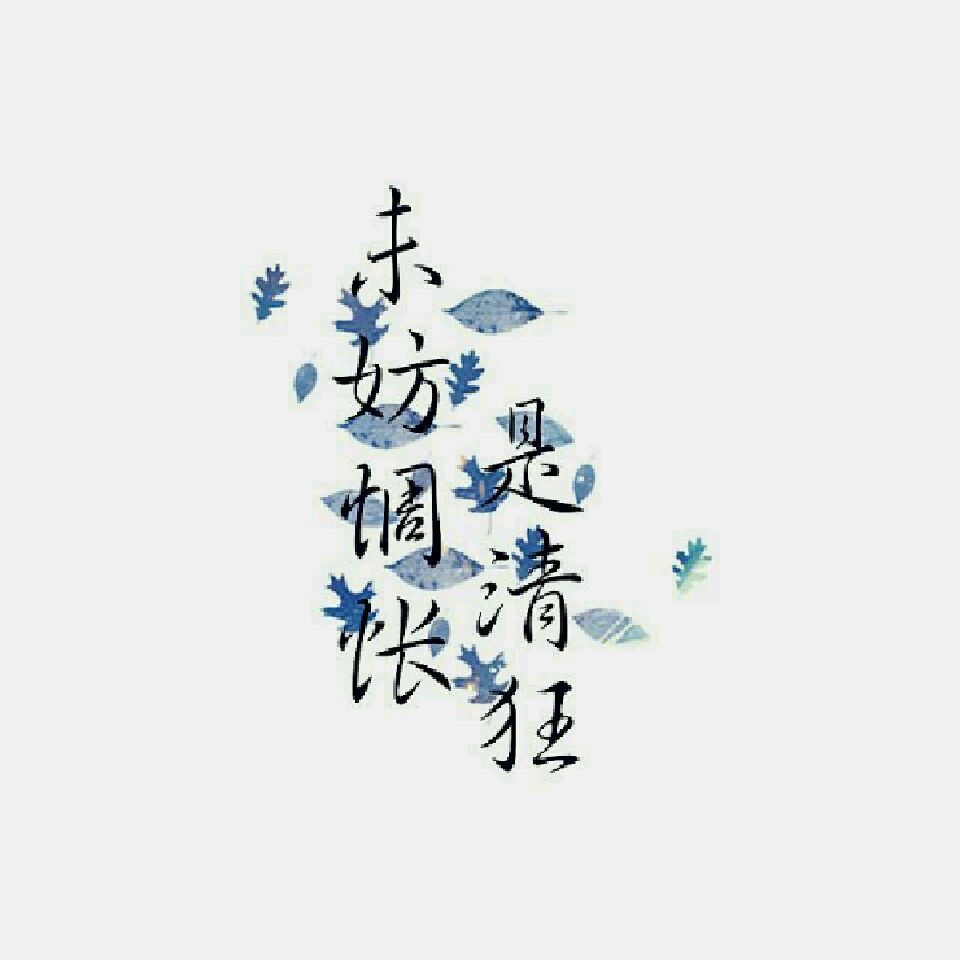 未妨惆怅
是清狂